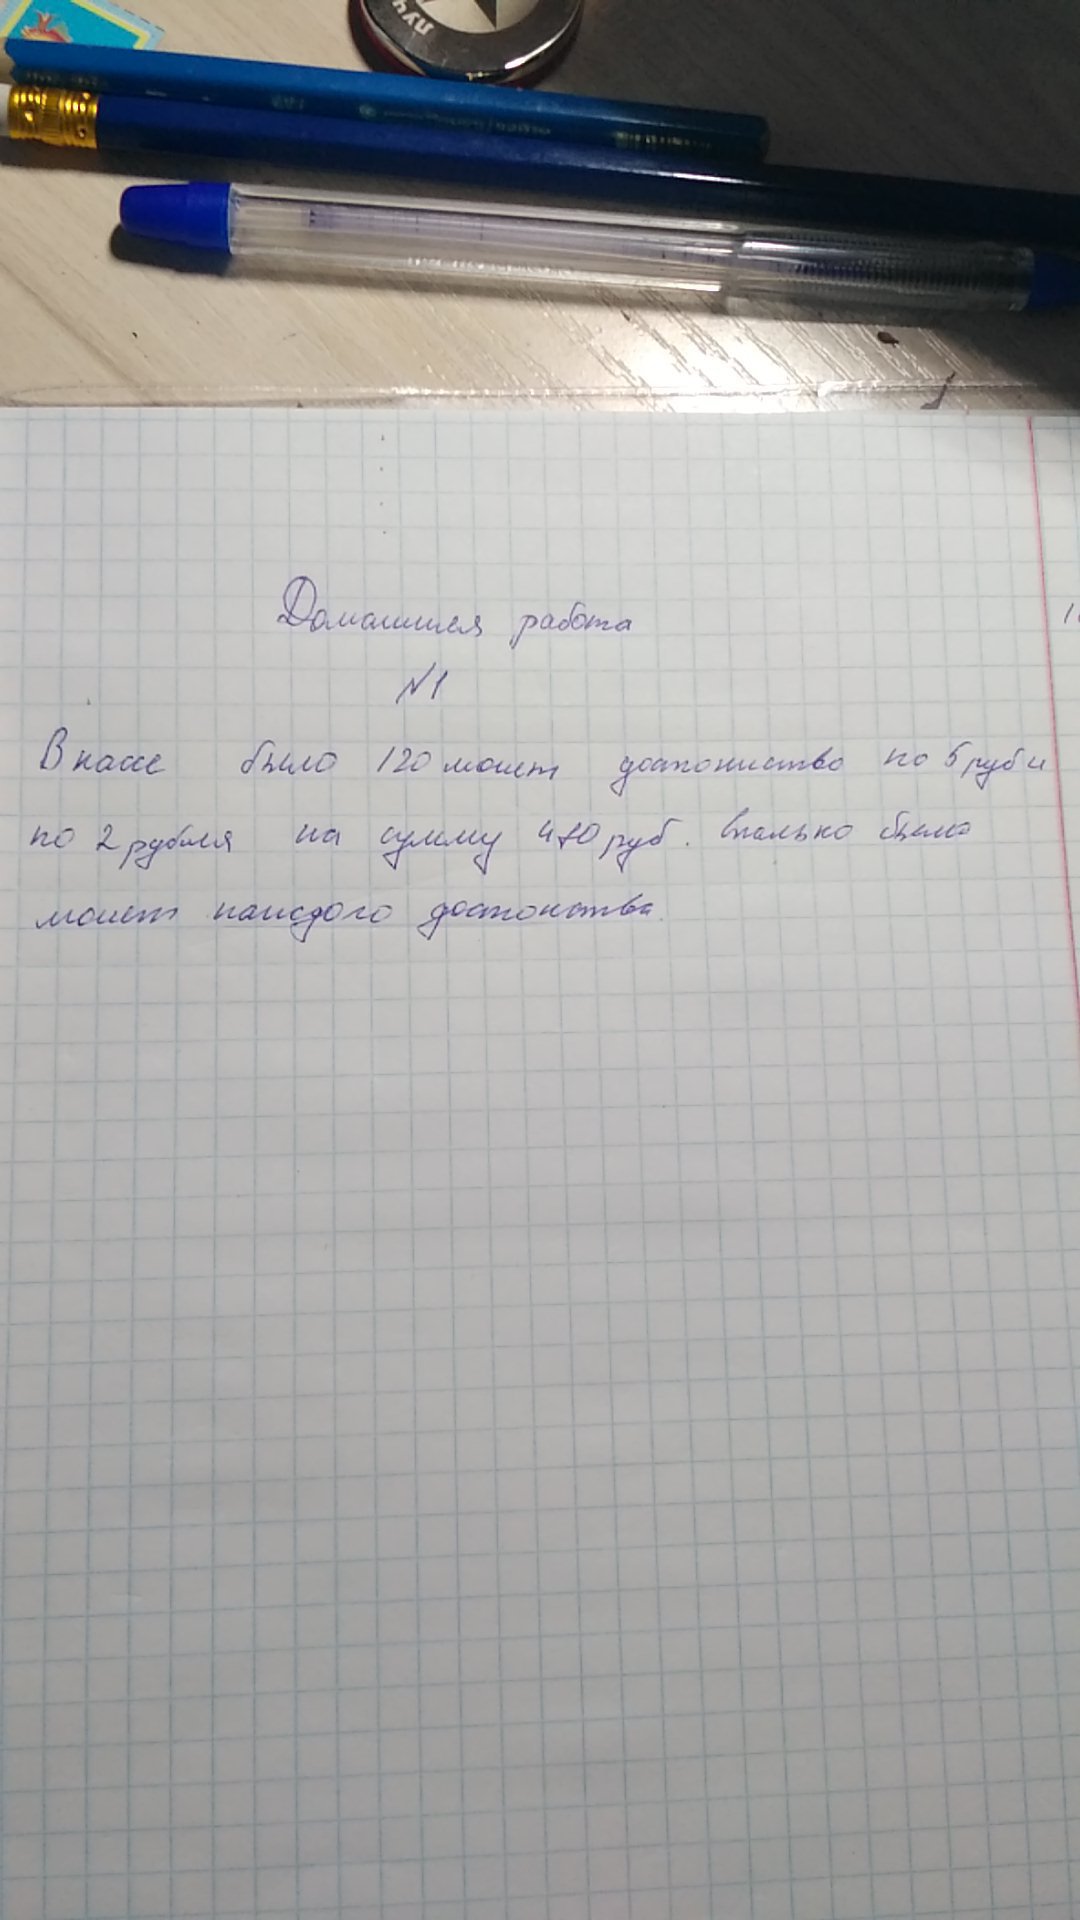 ПУЧ
Домашняя работа
№1
В кассе было 120 монет достониство по 5 руб и
по 2 рубля на сумму 470 руб. сколько было
монет каждого достонства.